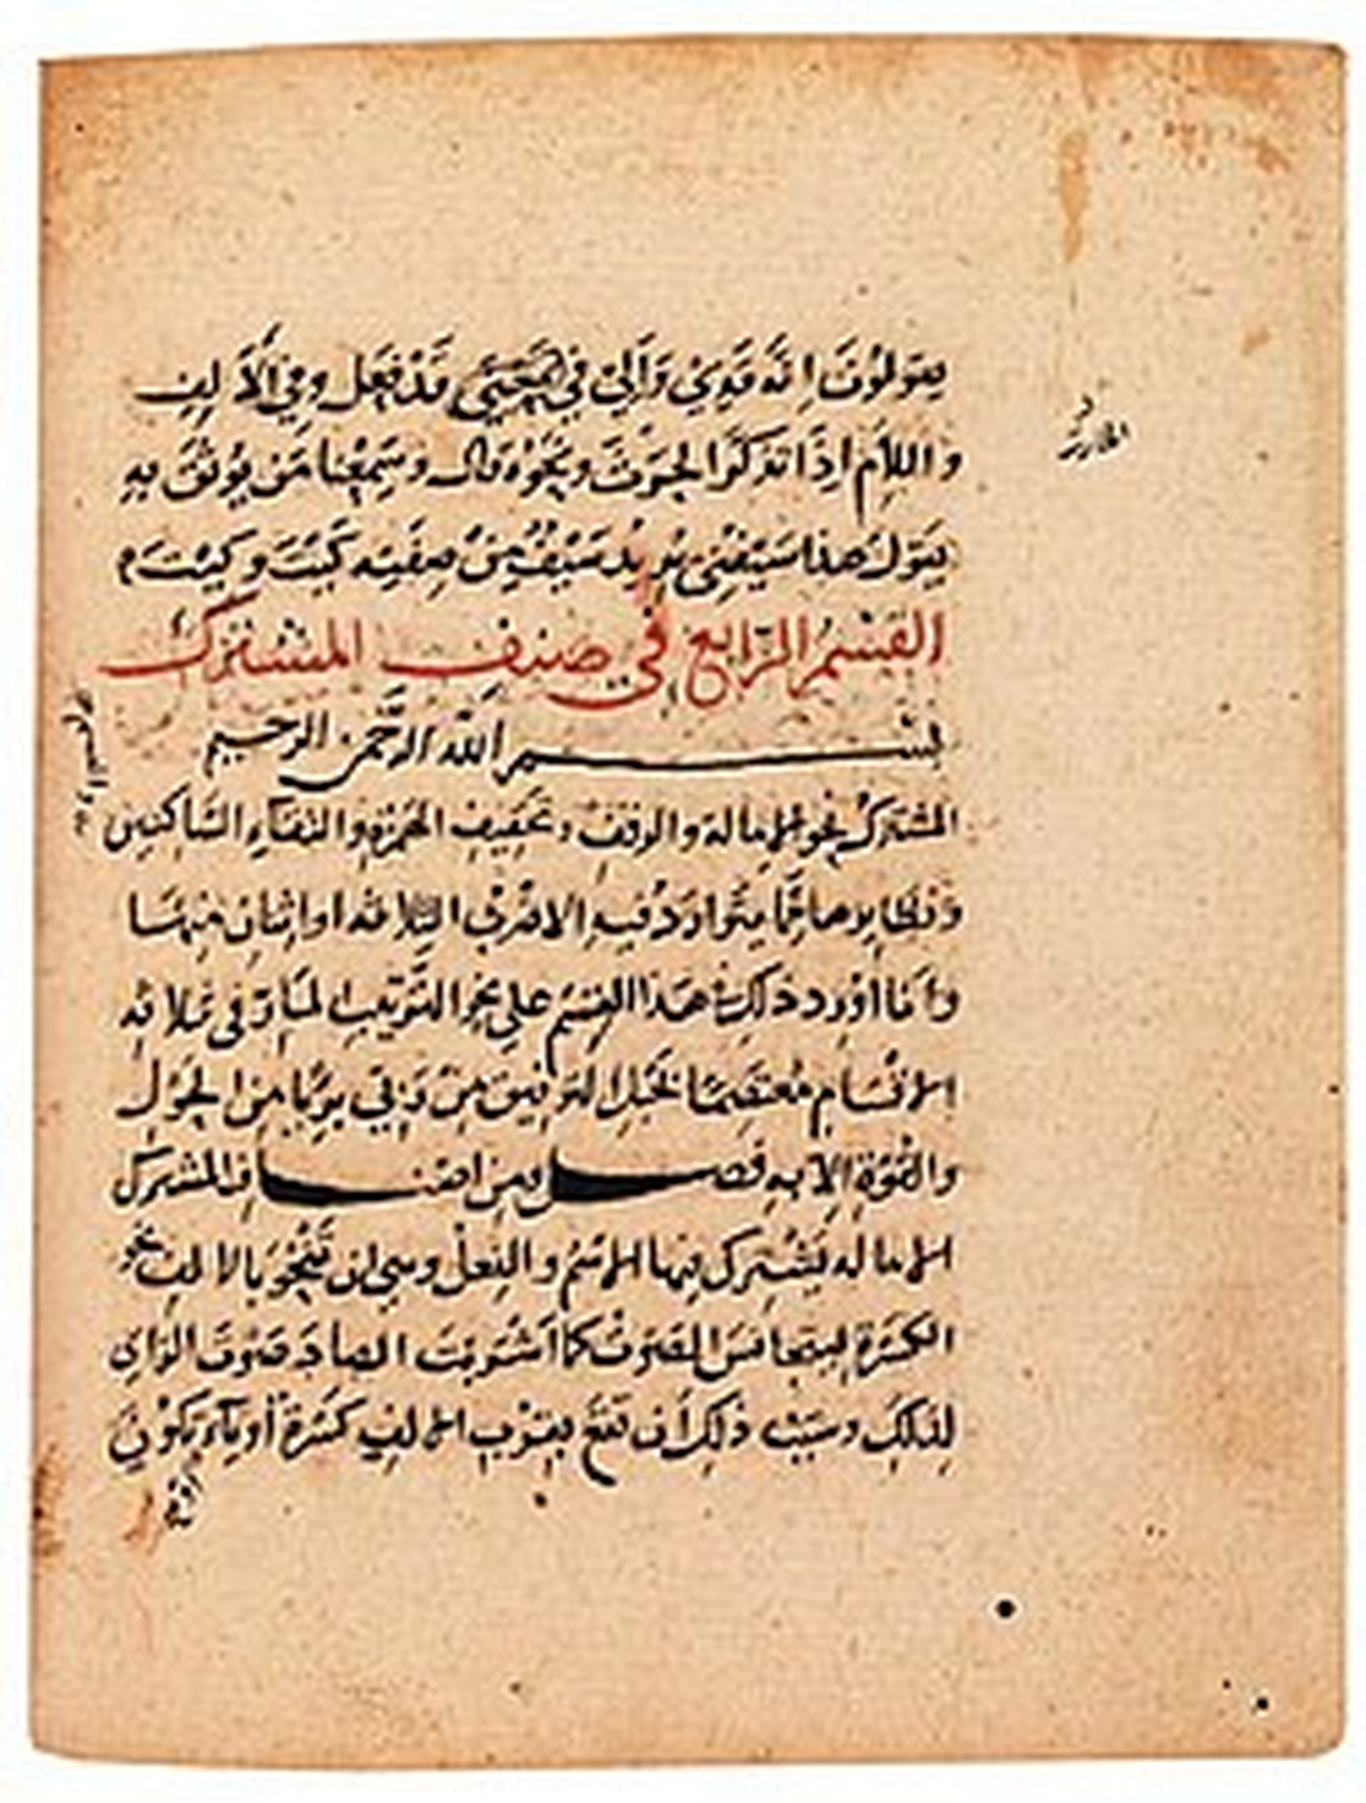 يقولون انه قدي والي في المعنى قد فعل وفي الالف
واللام اذا تذكر الحرث ونحوه قال وسمعنا من يوثق به
يقول هذا سيفني يريد سيف من صفته كيت وكيت
القسم الرابع في صنف المشترك
بسم الله الرحمن الرحيم
المشترك نحو الاماله والوقف وتخفيف الهمزة والتقاء الساكنين
ونظايرها مما يتوارد فيه الاضرب الثلاثه او اثنان منها
وانا اورد ذلك هذا القسم على نحو الترتيب المار في ثلاثه
الاقسام معتصما بحبل التوفيق من ربي بريا من الحول
والقوة الا به فصل ومن اصناف المشترك
الاماله يشترك فيها الاسم والفعل وهي ان تنحو بالالف نحو
الكسرة ليتجانس الصوت كما اشربت الصاد صوت الزاي
لذلك وسبب ذلك ان تقع بقرب الالف كسرة او ياء او تكون